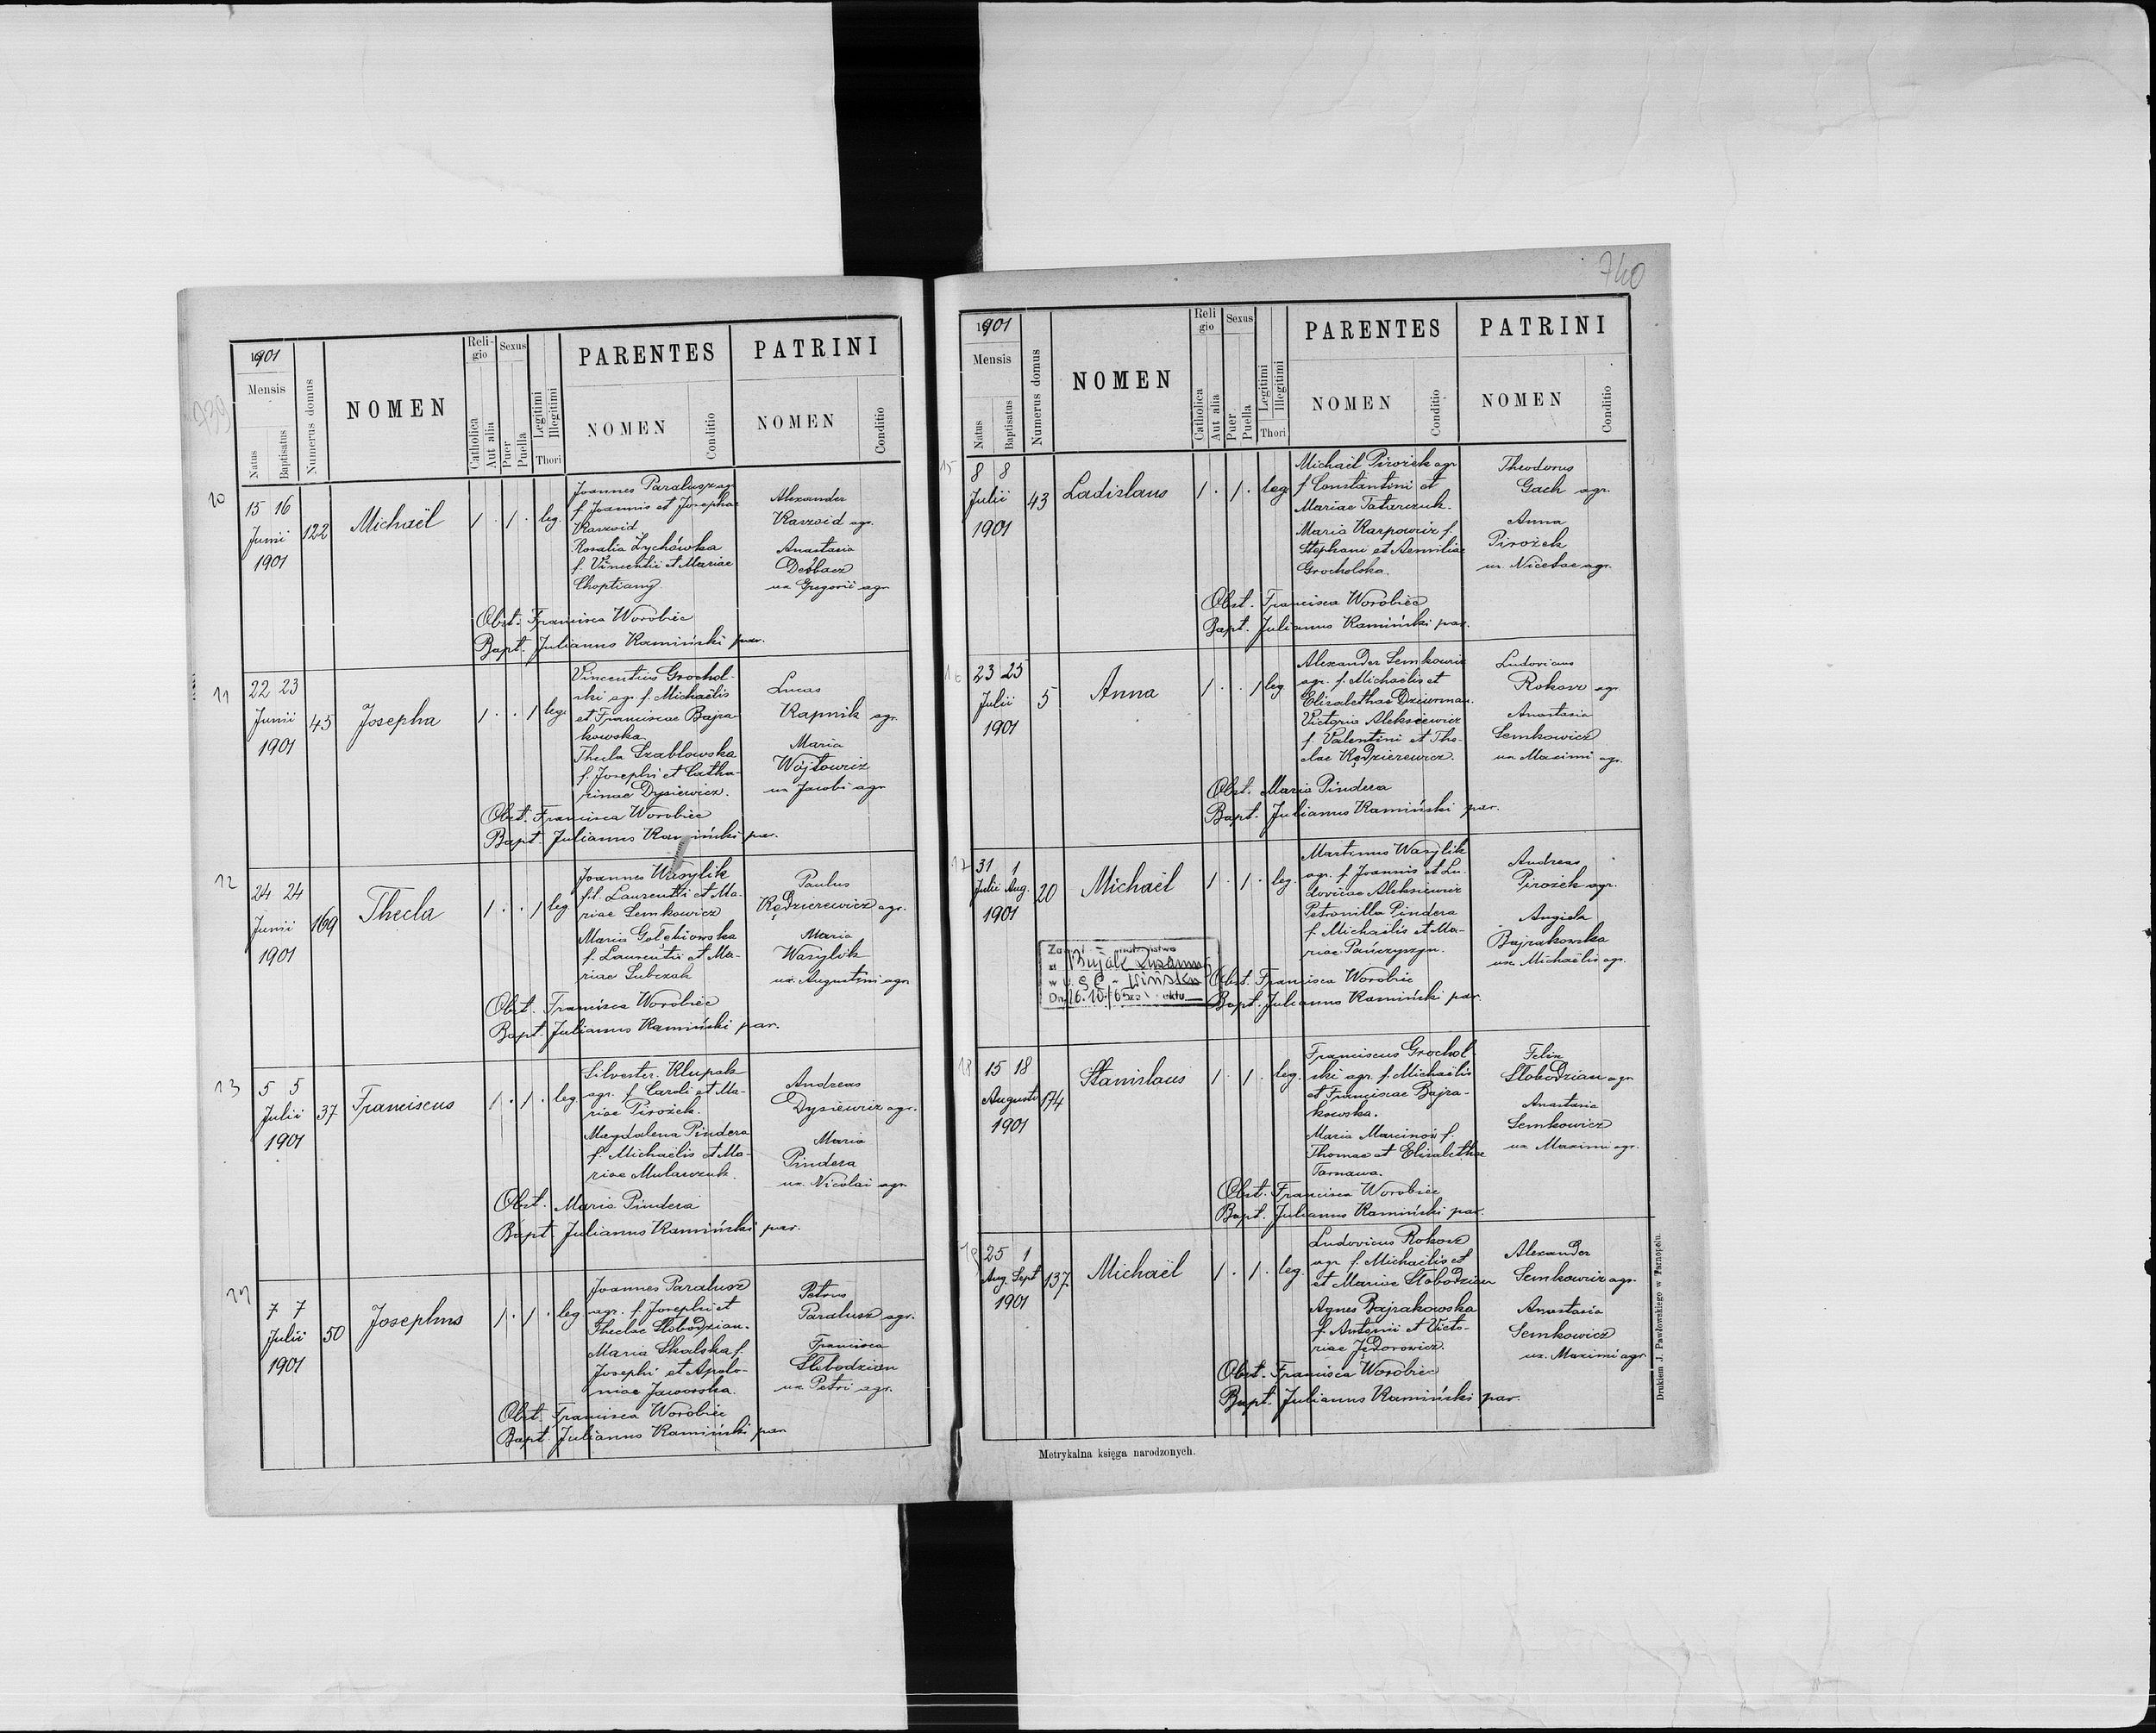 739
1901
Mensis
Natus
Baptisatus
Numerus domus
NOMEN
Reli-
gio
Catholica
Aut alia
Sexus
Puer
Puella
Legitimi
Illegitimi
Thori
PARENTES
NOMEN
Conditio
PATRINI
NOMEN
Conditio
10
15 16
Junii
1901
122
Michaël
1 . 1 . leg.
Joannes Paralusz agr
f Joannis et Josephae
Karzoid
Rosalia Zychówka
f. Vincentii et Mariae
Choptiany
Alexander
Karzoid agr.
Anastasia
Debbacz
ux Gregorii agr
Obst. Francisca Worobiec
Bapt. Julianus Kamiński par.
11
22 23
Junii
1901
45
Josepha
1 . . 1 leg.
Vincentius Grochol-
ski agr. f. Michaëlis
et Franciscae Bajra-
kowska
Thecla Szablowska
f. Josephi et Catha-
rinae Dysiewicz.
Lucas
Kapnik agr.
Maria
Wójtowicz
ux Jacobi agr
Obst. Francisca Worobiec
Bapt. Julianus Kamiński par.
12
24 24
Junii
1901
169
Thecla
1 . . 1 leg
Joannes Wasylik
fil. Laurentii et Ma-
riae Semkowicz
Maria Gołębiowska
f. Laurentii et Ma-
riae Subczak
Paulus
Kędzierewicz agr.
Maria
Wasylik
ux. Augustini agr
Obst. Francisca Worobiec
Bapt. Julianus Kamiński par.
13
5 5
Julii
1901
37
Franciscus
1 . 1 . leg.
Silvester Klupak
agr. f. Caroli et Ma-
riae Pirożek.
Magdalena Pindera
f. Michaëlis et Ma-
riae Mulawczuk.
Andreas
Dysiewicz agr.
Maria
Pindera
ux. Nicolai agr
Obst. Maria Pindera
Bapt. Julianus Kamiński par.
14
7 7
Julii
1901
50
Josephus
1 . 1 . leg
Joannes Paralusz
agr. f. Josephi et
Theclae Słobodzian.
Maria Skalska f.
Josephi et Apolo-
niae Jaworska.
Petrus
Paralusz agr.
Francisca
Słobodzian
ux Petri agr.
Obst. Francisca Worobiec
Bapt. Julianus Kamiński par
740
1901
Mensis
Natus
Baptisatus
Numerus domus
NOMEN
Reli
gio
Catholica
Aut alia
Sexus
Puer
Puella
Legitimi
Illegitimi
Thori
PARENTES
NOMEN
Conditio
PATRINI
NOMEN
Conditio
15
8 8
Julii
1901
43
Ladislaus
1 . 1 . leg
Michaël Pirożek agr
f Constantini et
Mariae Tatarczuk.
Maria Karpowicz f.
Stephani et Aemiliae
Grocholska.
Theodorus
Gach agr.
Anna
Pirożek
ux. Nicetae agr.
Obst. Francisca Worobiec
Bapt. Julianus Kamiński par.
16
23 25
Julii
1901
5
Anna
1 . . 1 leg
Alexander Semkowicz
agr. f. Michaëlis et
Elisabethae Dziurman.
Victoria Aleksiewicz
f. Valentini et The-
clae Kędzierewicz.
Ludovicus
Rokosz agr.
Anastasia
Semkowicz
ux Maximi agr.
Obst. Maria Pindera
Bapt. Julianus Kamiński par.
17
31 1
Julii Aug.
1901
20
Michaël
1 . 1 . leg.
Martinus Wasylik
agr. f Joannis et Lu-
dovicae Aleksiewicz
Petronilla Pindera
f. Michaëlis et Ma-
riae Pańczyszyn.
Andreas
Pirożek agr.
Angela
Bajrakowska
ux. Michaëlis agr.
Obst. Francisca Worobiec
Bapt. Julianus Kamiński par.
18
15 18
Augusti
1901
174
Stanislaus
1 . 1 . leg.
Franciscus Grochol-
ski agr f. Michaëlis
et Franciscae Bajra-
kowska.
Maria Marcinów f.
Thomae et Elisabethae
Tarnawa.
Felix
Słobodzian agr
Anastasia
Semkowicz
ux Maximi agr.
Obst. Francisca Worobiec
Bapt. Julianus Kamiński par.
19
25 1
Aug. Sept
1901
137
Michaël
1 . 1 . leg.
Ludovicus Rokosz
agr f. Michaëlis et
et Mariae Słobodzian
Agnes Bajrakowska
f. Antonii et Victo-
riae Jędorowicz.
Alexander
Semkowicz agr.
Anastasia
Semkowicz
ux. Maximi agr
Obst. Francisca Worobiec
Bapt. Julianus Kamiński par.
Metrykalna księga narodzonych.
Drukiem J. Pawłowskiego w Tarnopolu.